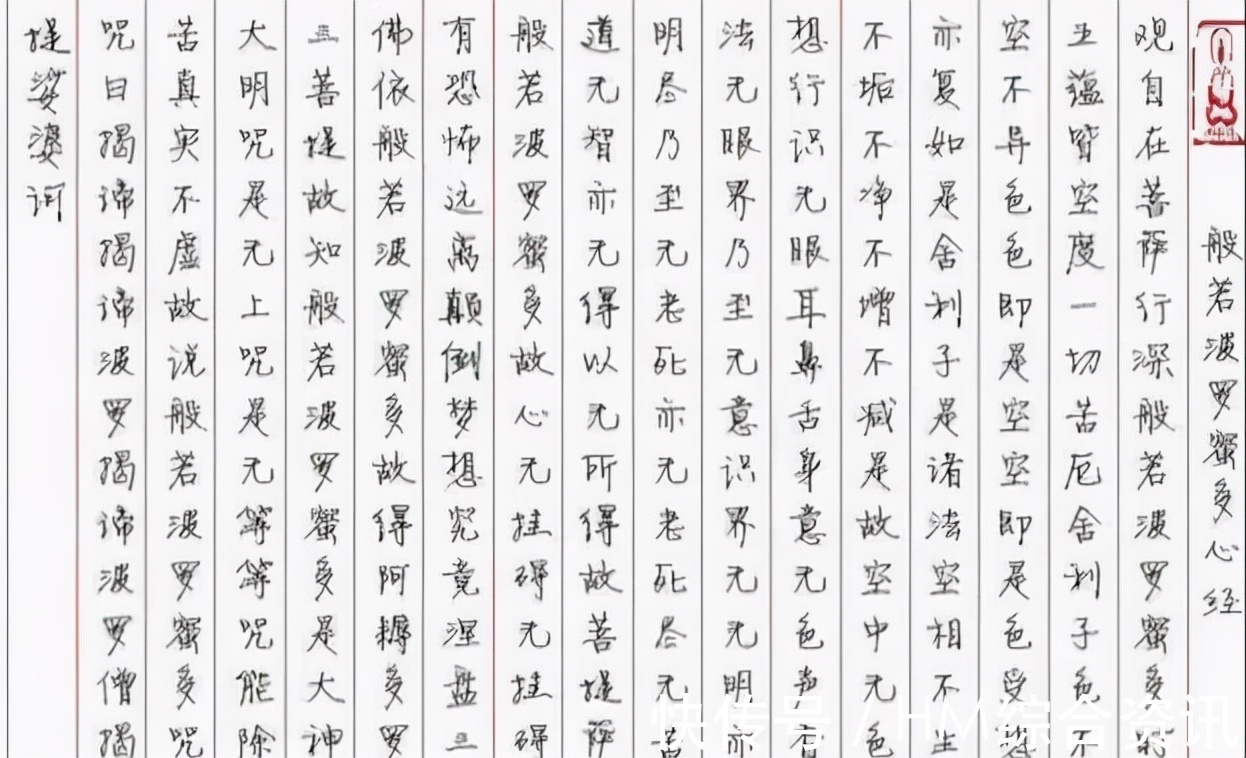 般若波罗蜜多心经
观自在菩萨行深般若波罗蜜多时
五蕴皆空度一切苦厄舍利子色不
空不异色色即是空空即是色受想
亦复如是舍利子是诸法空相不生
不垢不净不增不减是故空中无色
想行识无眼耳鼻舌身意无色声香
法无眼界乃至无意识界无无明亦
明尽乃至无老死亦无老死尽无苦
道无智亦无得以无所得故菩提萨
般若波罗蜜多故心无挂碍无挂碍
有恐怖远离颠倒梦想究竟涅盘三
佛依般若波罗蜜多故得阿耨多罗
三菩提故知般若波罗蜜多是大神
大明咒是无上咒是无等等咒能除
苦真实不虚故说般若波罗蜜多咒
咒曰揭谛揭谛波罗揭谛波罗僧揭
提娑婆诃
快传号 / HM综合资讯